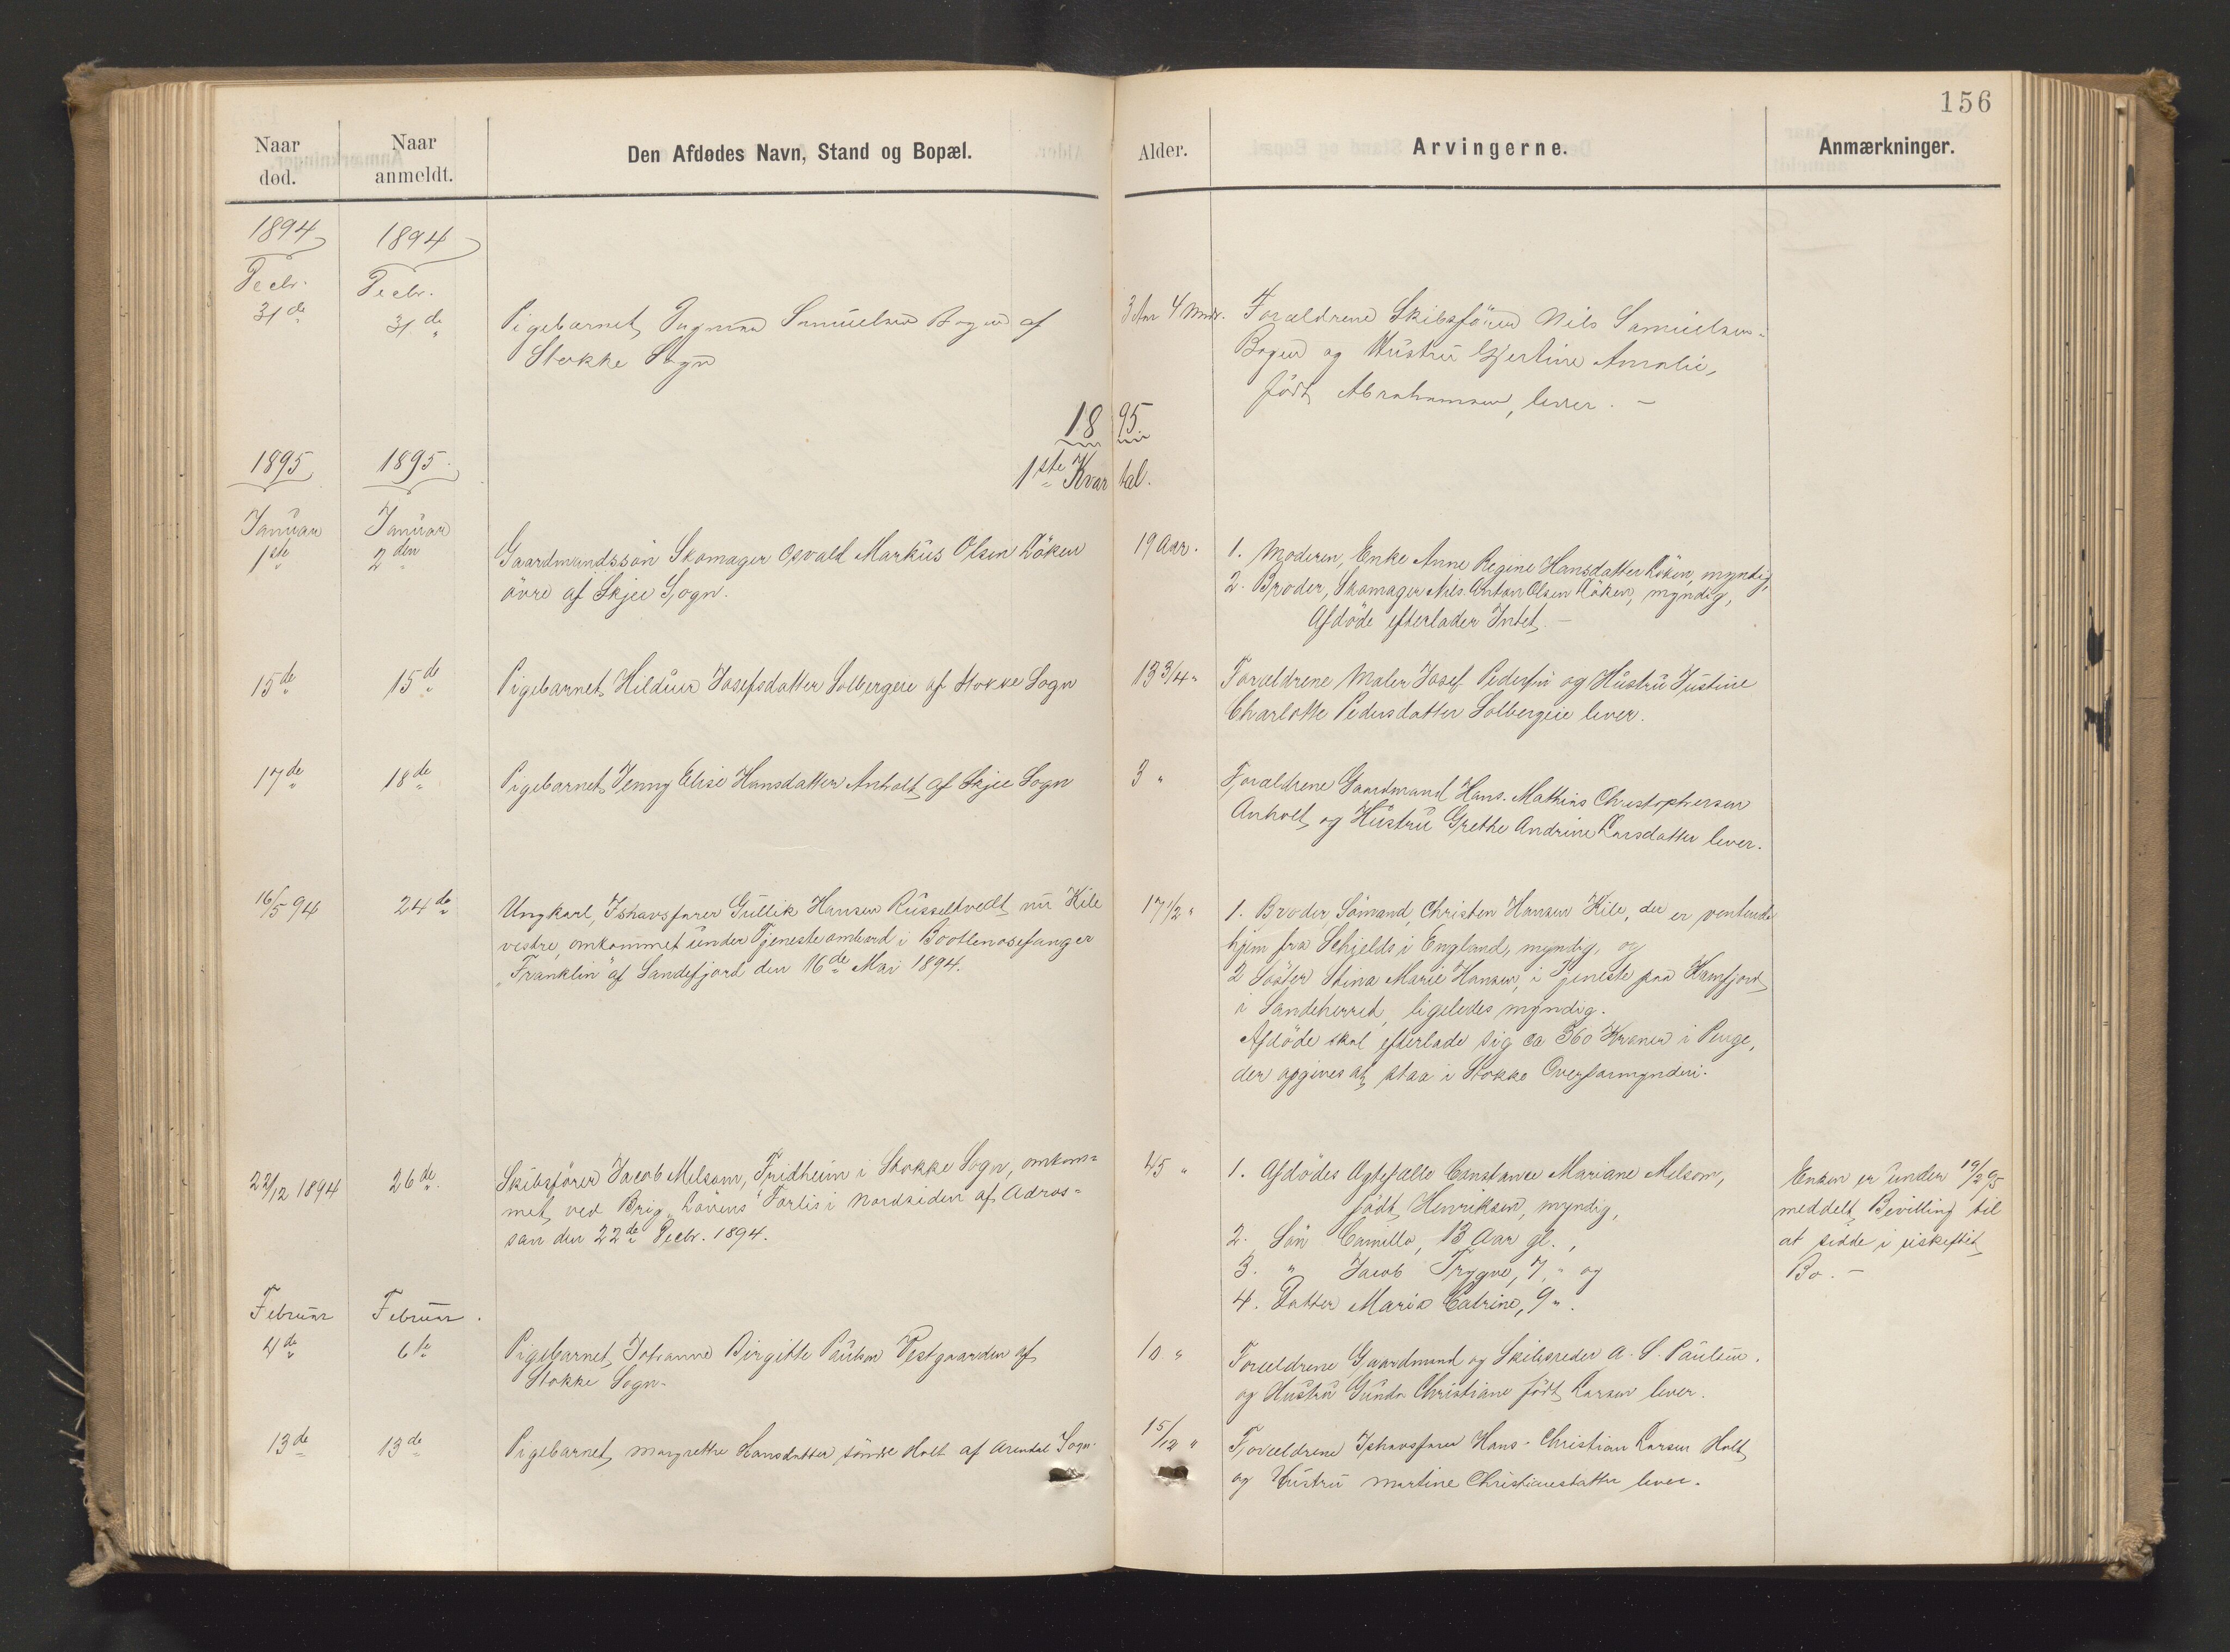 156
Naar død.
Naar anmeldt.
Den Afdødes Navn, Stand og Bopæl.
Alder.
Arvingerne.
Anmærkninger.
1894 1894
Decbr. Decbr.
31de 31de Pigebarnet Samuelsen Bogen af
Stokke Sogn
3 Aar 4 Mndr. Forældrene Skibsfører Nils Samuelsen
Bogen og Hustru Amalie,
født Abrahamsen, lever. –
1895
1ste Kvartal.
1895 1895
Januar Januar
1ste 2den Gaardmandssøn Skomager Osvald Markus Olsen Løken
övre af Skjee Sogn.
19 Aar. 1. Moderen, Enke Anne Regine Hansdatter Løken, myndig,
2. Broder, Skomager Nils Anton Olsen Løken, myndig,
Afdöde efterlader Intet. –
15de 15de Pigebarnet Hildur Josefsdatter Solbergeie af Stokke Sogn
13 3/4 " Forældrene Maler Josef Pedersen og Hustru Justine
Charlotte Pedersdatter Solbergeie lever.
17de 18de Pigebarnet Jenny Elise Hansdatter Anholt af Skjee Sogn
3 " Forældrene Gaardmand Hans Mathias Christophersen
Anholt og Hustru Grethe Andrine Larsdatter lever.
16/5 94 24de Ungkarl, Ishavsfarer Gullik Hansen Russeltvedt nu Kile
vestre, omkommet under Tjeneste ombord i Bottlenosefanger
"Franklin" af Sandefjord den 16de Mai 1894.
17 1/2 " 1. Broder, Sömand, Christen Hansen Kile, der er ventende
hjem fra Schjelds i England, myndig, og
2 Søster Stina Marie Hansen, i Tjeneste paa
i Sandeherred, ligeledes myndig.
Afdöde skal efterlade sig ca 360 Kroner i Penge,
der opgives at staa i Stokke Overformynderi.
22/12 1894 26de Skibsfører Jacob Melsom, Fridheim i Stokke Sogn, omkom=
met ved Brig "Lövens" Forlis i Nordsiden af Adros=
san den 22de Decbr. 1894.
45 " 1. Afdödes Ægtefælle Constance Mariane Melsom,
födt Henriksen, myndig,
2. Sön Camillo, 13 Aar gl.,
3. " Jacob Trygve, 7 " og
4. Datter Maria Catrine, 9 ".
Enken er under 19/2 95
meddelt Bevilling til
at sidde i uskiftet
Bo. –
Februar Februar.
4de 6te Pigebarnet Johanne Birgitte Paulsen Vestgaarden af
Stokke Sogn.
10 " Forældrene Gaardmand og Skibsreder A. S. Paulsen
og Hustru Gunda Christiane född Larsen lever.
13de 13de Pigebarnet Margrethe Hansdatter söndre Holt af Arendal Sogn
15/12 " Forældrene Ishavsfarer Hans Christian Larsen Holt
og Hustru Martine Christiansdatter lever.